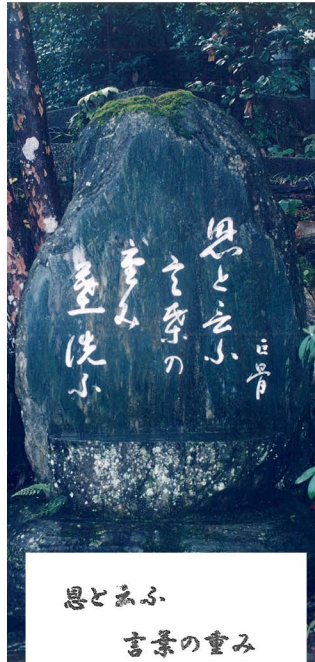 恩と云ふ
言葉の
重み
墓洗ふ
正骨
恩と云ふ
言葉の重み